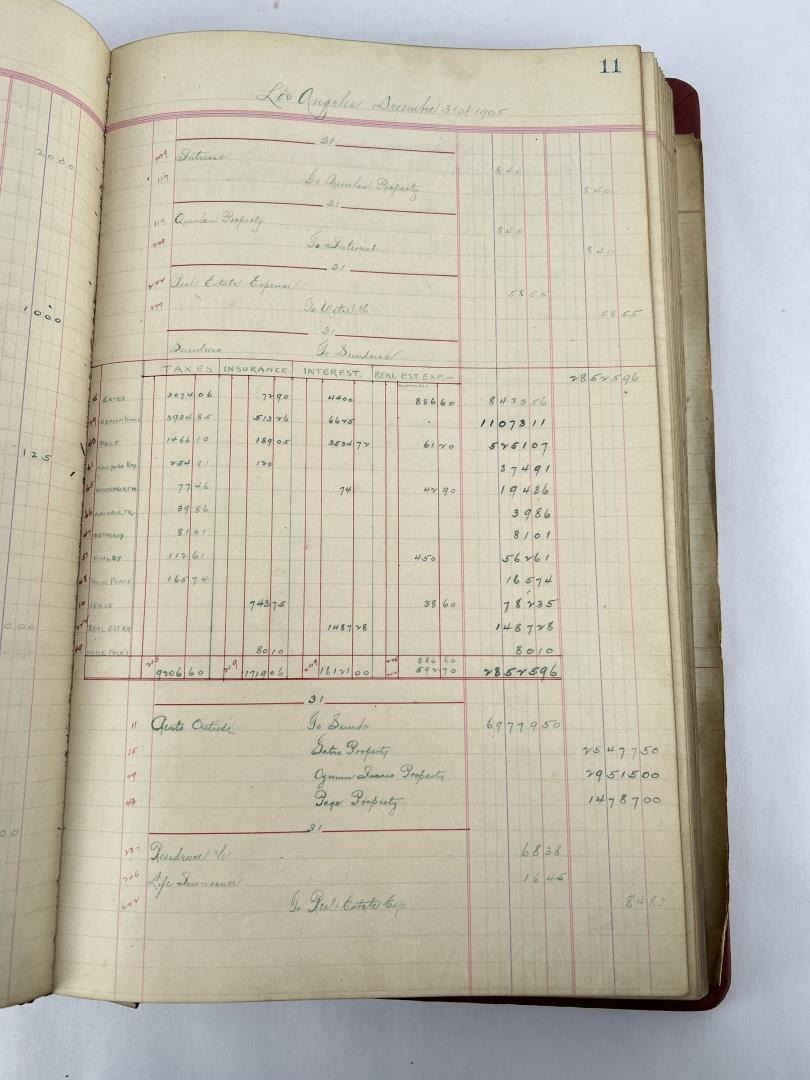 2000
1000
125
000
00
11
Los Angeles December 31st 1905
31
209 Interest 840
117 To Quinlan Property 840
31
117 Quinlan Property 840
209 To Interest 840
31
222 Real Estate Expense 5855
To Water a/c 5855
31
Sundries To Sundries 2852596
TAXES INSURANCE. INTEREST. REAL EST. EXP.—
GATES 307406 7290 4400 88660 843356
393485 51326 6625 1107311
PAGE 146610 18905 353472 6120 525107
25491 120 37491
WOODSWORTH 7746 74 4290 19436
3986 3986
8101 8101
FINLEY 11261 450 56261
PALM PLACE 16574 16574
LEASE 74375 3860 78235
REAL EST EQ 148728 148728
HOME FURN'S 8010 8010
88660
920660 219 171906 209 1612100 59270 2852596
31
11 Rents Outside To Sunds 6977950
15 Gates Property 2547750
29 Property 2951500
43 Page Property 1478700
31
237 Residence a/c 6838
206 Life Insurance 1645
222 To Real Estate Exp 8483